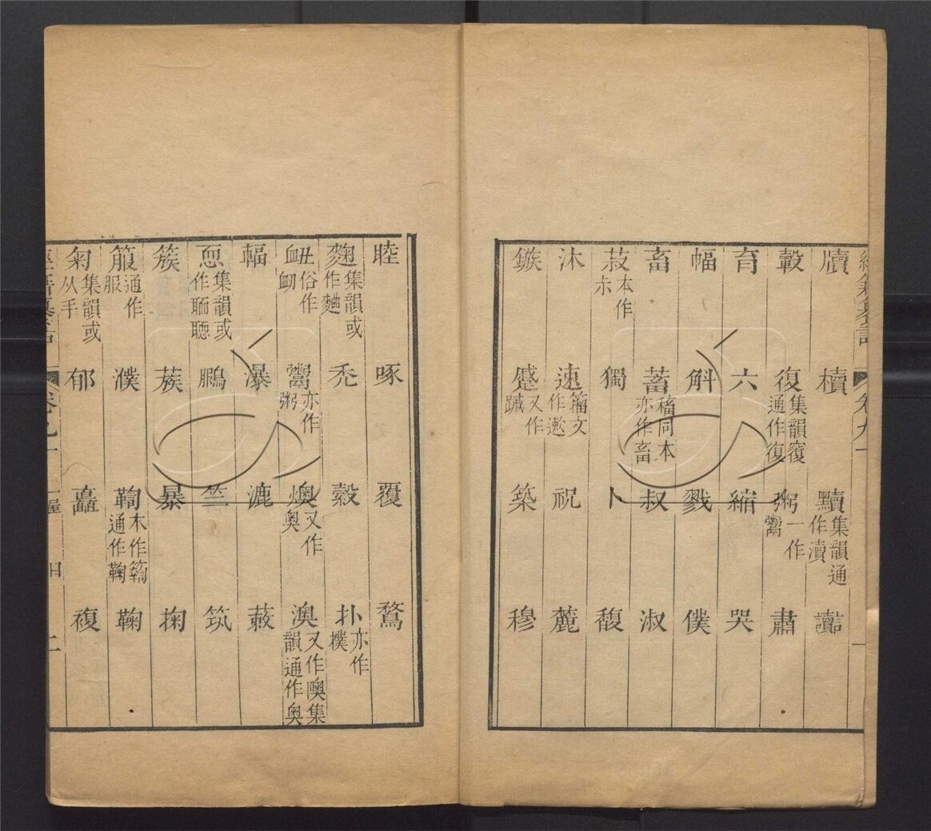 牘 櫝 黷集韻通作瀆 讟
轂 復集韻𡪢通作復 粥一作鬻 肅
育 六 縮 哭
幅 斛 戮 僕
畜 蓄稸同本亦作畜 叔 淑
菽本作尗 獨 卜 馥
沐 速籀文作遬 祝 麓
鏃 蹙又作蹴 築 穆
睦 啄 覆 鶩
麴集韻或作麯 禿 縠 扑亦作撲
衄俗作衂 鬻亦作粥 燠又作奧 澳又作隩集韻通作奧
蝠 瀑 漉 蔌
恧集韻或作聏聰 鵩 竺 筑
簇 蔟 暴 掬
箙通作服 濮 鞫本作𥷚通作鞠 鞠
匊集韻或从手 郁 矗 複
經籍籑詁 卷九十 一屋 目 二